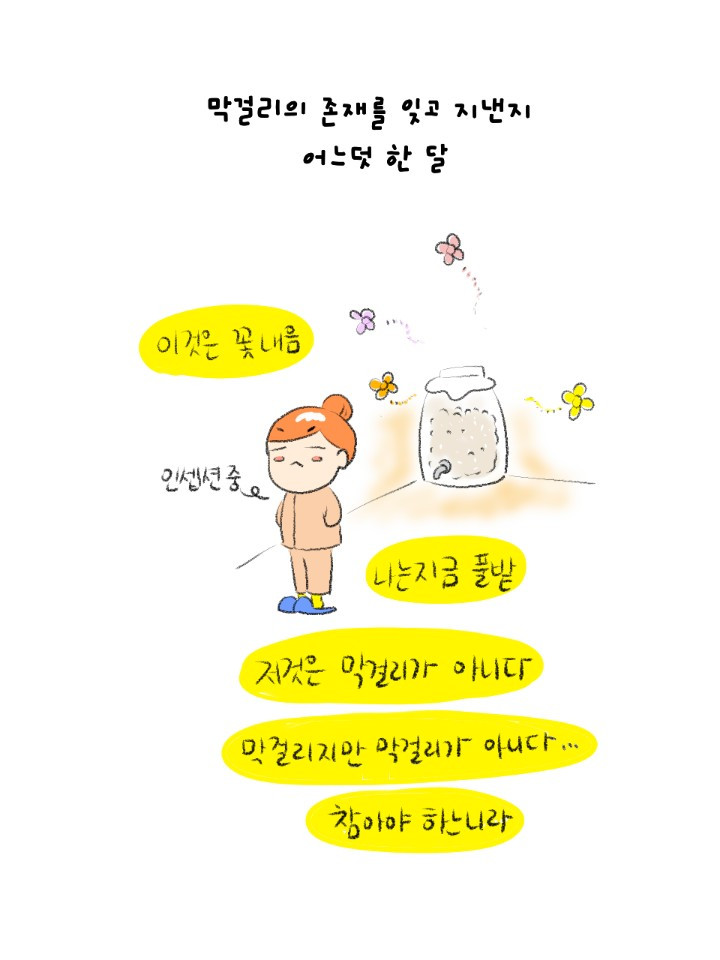 막걸리의 존재를 잊고 지낸지
어느덧 한 달
이것은 꽃내음
인셉션중
나는지금 풀밭
저것은 막걸리가 아니다
막걸리지만 막걸리가 아니다...
참아야 하느니라